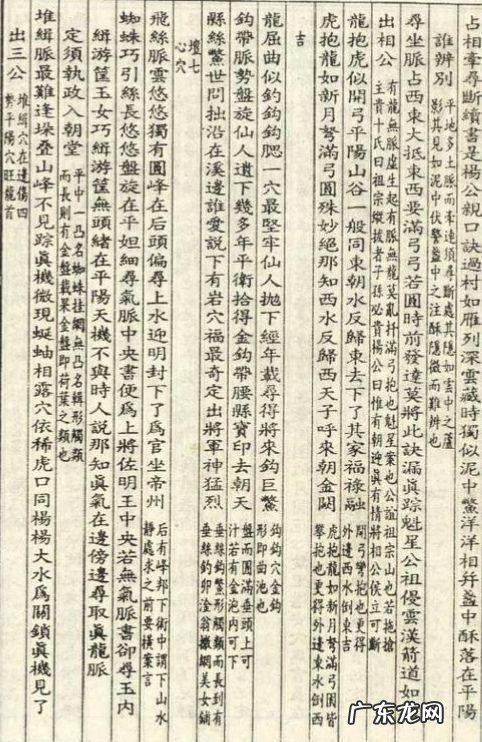 占相牽尋斷續書是楊公親口訣過村如雁列深雲藏時獨似泥中鱉洋洋相幷盞中酥落在平陽
誰辨別 平地多土脈而牽連須尋斷處其隱如雲中之廬
影其見如泥中伏鱉盞中之注酥隱微而難辨也
尋坐脈占西東大抵東西要滿弓弓若圓時前發達莫將此訣漏眞踪魁星公祖侵雲漢箭道如
出相公 有龍無脈虛生起有脈無龍莫亂扦滿弓抱也魁星案也公誼祖宗山也若拖搶
主貴十氏曰祖宗縱拔者子孫必貴楊公曰惟有朝迎眞有情將相公侯立可斷
龍抱虎似開弓平陽山谷一般同東朝水反歸東去下了其家福祿融 開弓彎抱也更得
外邊西水倒東吉
虎抱龍如新月弩滿弓圓殊妙絕那知西水反歸西天子呼來朝金闕 虎抱龍如新月弩滿弓圓皆
攀抱也更得外邊東水倒西
吉
龍屈曲似釣鈎鈎腮一穴最堅牢仙人抛下經年載尋得將來鈎巨鱉 鈎鈎穴金鈎
形即曲池也
鈎帶脈勢盤旋仙人遺下幾多年平衡拾得金鈎帶腰縣寶印去朝天 盤而圓滿垂頭上可
汁若有金泡內可下
縣絲鱉世間拙沿在溪邊誰愛説下有岩穴福最奇定出將軍神猛烈 垂絲釣鱉形觸類而長則有
垂絲釣卵淦翁撒網美女鋪
壇七
心穴
飛絲脈雲悠悠獨有圓峰在后頭偏尋上水迎明封下了爲官坐帝州 后有峰邦下術中謂下山水
靜處求之前要橫案言
蜘蛛巧引絲長悠悠盤旋在平妲細尋氣脈中央書便爲上將佐明王中央若無氣脈書卻尋玉內
緝游筐玉女巧緝游筐無頭緒在平陽天機不與時人說那知眞氣在邊傍邊尋取眞龍脈
定須執政入朝堂 平中一凸名蜘蛛挂網無凸名緝形觸類
而長則有金盤載果金盤即荷葉之類也
堆緝脈最難逢垛疊山峰不見踪眞機微現蜒蚰相露穴依稀虎口同楊楊大水爲關鎖眞機見了
出三公 堆緝穴在邊傷四
勢平陽穴旺龍首
广东龙网